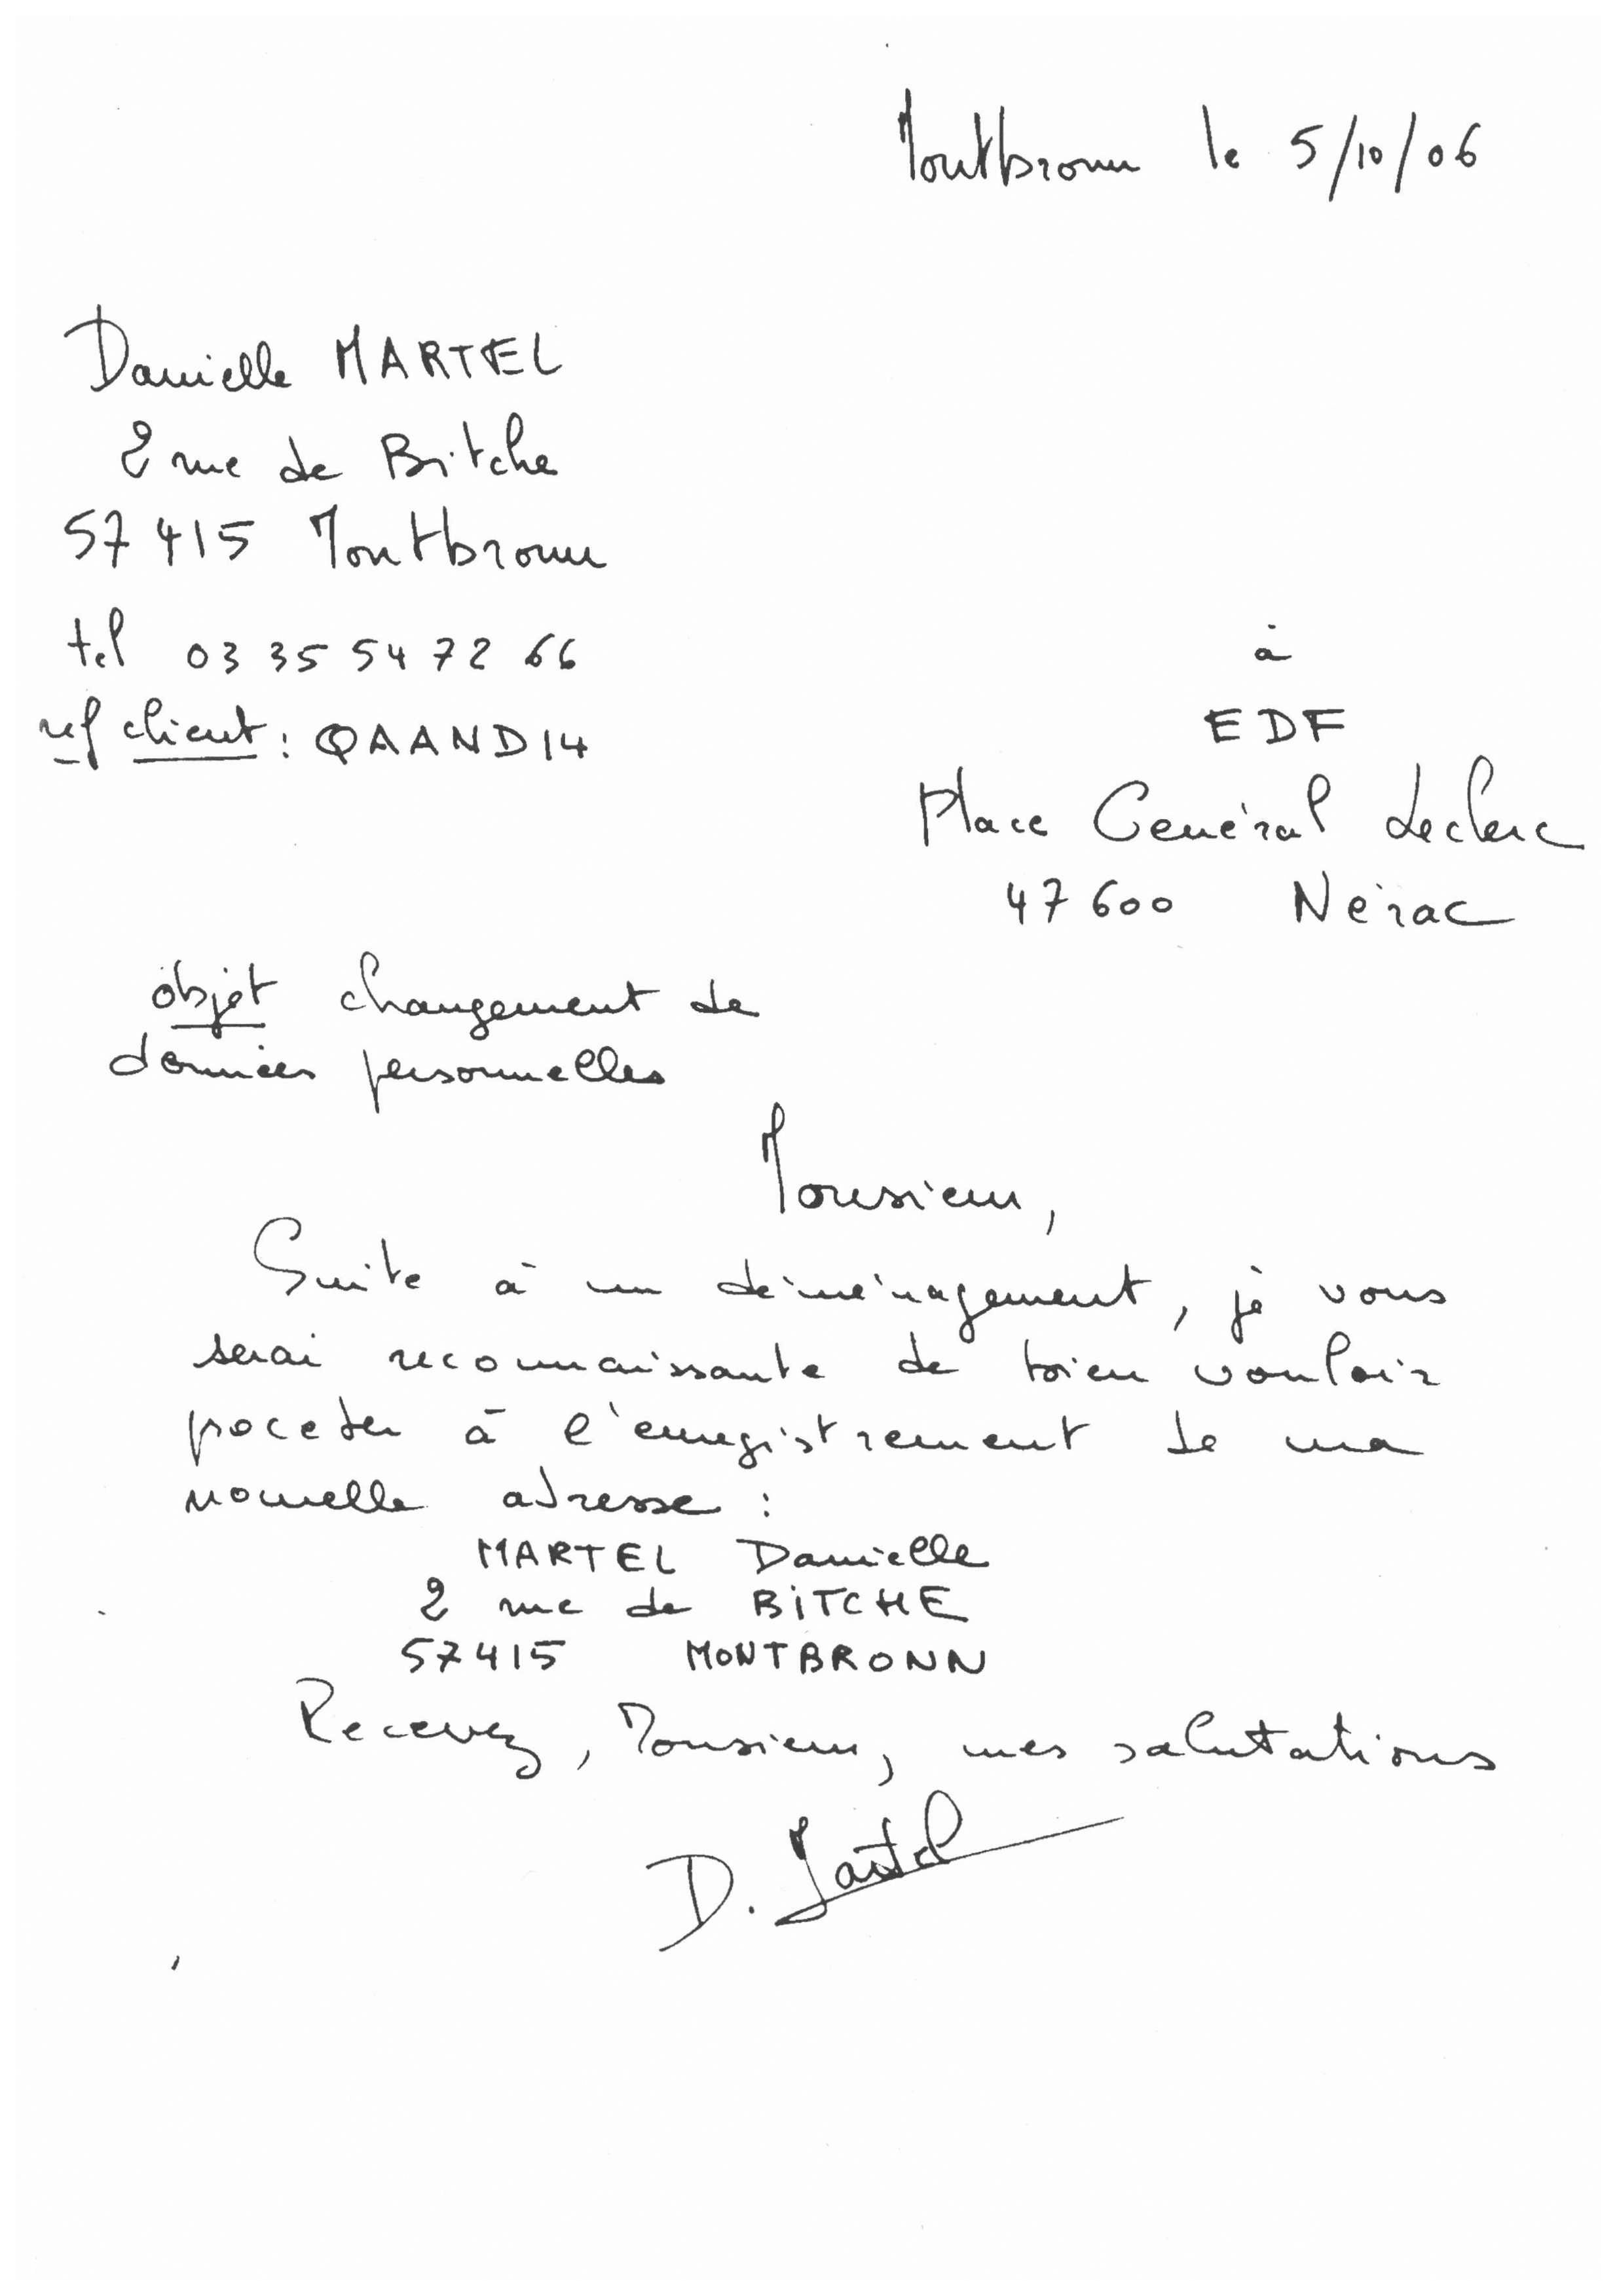 Montbronn le 5/10/06
Danielle MARTEL
2 rue de Bitche
57415 Montbronn
tel 03 35 54 72 66
ref client : QAAND14
à
EDF
Place Général Leclerc
47600 Nérac
objet changement de
données personnelles
Monsieur,
Suite à un déménagement, je vous
serai reconnaissante de bien vouloir
proceder à l'enregistrement de ma
nouvelle adresse :
MARTEL Danielle
2 rue de BITCHE
57415 MONTBRONN
Recevez, Monsieur, mes salutations
D. Martel